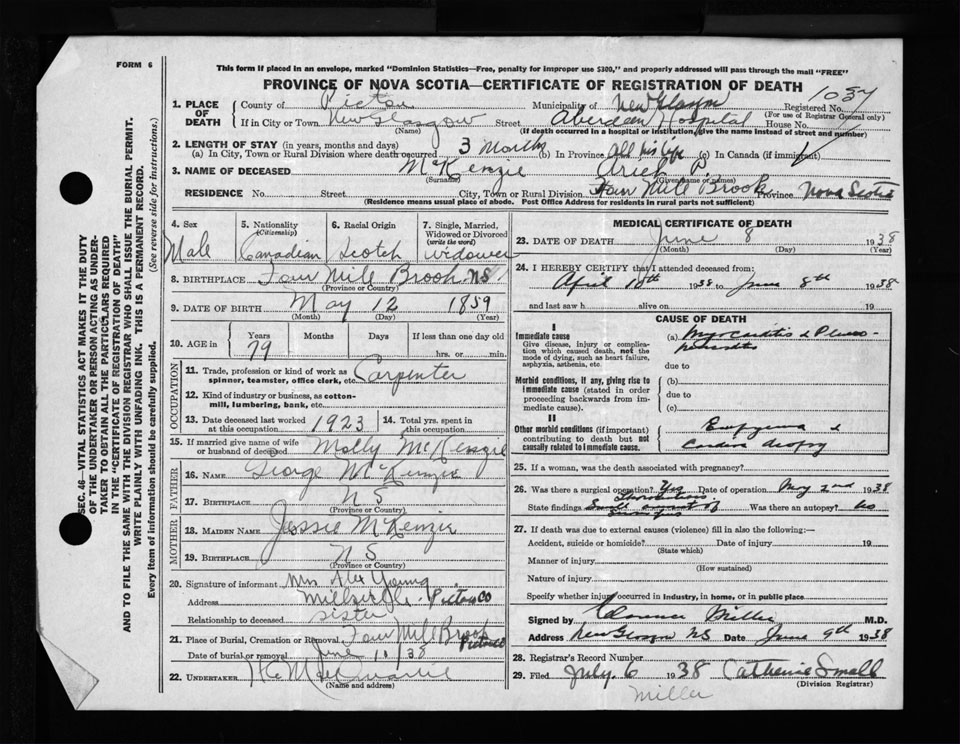 FORM 6
This form if placed in an envelope, marked "Dominion Statistics—Free, penalty for improper use $300," and properly addressed will pass through the mail "FREE"
PROVINCE OF NOVA SCOTIA—CERTIFICATE OF REGISTRATION OF DEATH
1. PLACE OF DEATH
County of Pictou Municipality of New Glasgow Registered No.
(For use of Registrar General only)
If in City or Town New Glasgow Street Aberdeen Hospital House No.
(Name) (If death occurred in a hospital or institution, give the name instead of street and number)
2. LENGTH OF STAY (in years, months and days)
(a) In City, Town or Rural Division where death occurred 3 Months (b) In Province All his life (c) In Canada (if immigrant)
3. NAME OF DECEASED McKenzie P.
(Surname) (Given name or names)
RESIDENCE No. Street City, Town or Rural Division Four Mill Brook Province Nova Scotia
(Residence means usual place of abode. Post Office Address for residents in rural parts not sufficient)
4. Sex Male
5. Nationality (Citizenship) Canadian
6. Racial Origin Scotch
7. Single, Married, Widowed or Divorced (write the word) Widower
8. BIRTHPLACE Four Mill Brook NS
(Province or Country)
9. DATE OF BIRTH May 12 1859
(Month) (Day) (Year)
10. AGE in Years 79 Months Days If less than one day old hrs. or min.
OCCUPATION
11. Trade, profession or kind of work as spinner, teamster, office clerk, etc. Carpenter
12. Kind of industry or business, as cotton-mill, lumbering, bank, etc.
13. Date deceased last worked at this occupation 1923
14. Total years spent in this occupation
15. If married give name of wife or husband of deceased Molly McKenzie
FATHER
16. NAME George McKenzie
17. BIRTHPLACE NS
(Province or Country)
MOTHER
18. MAIDEN NAME Jessie McKenzie
19. BIRTHPLACE NS
(Province or Country)
20. Signature of informant Mrs Alex Young
Address Pictou Co
Relationship to deceased sister
21. Place of Burial, Cremation or Removal Four Mill Brook Pictou Co
Date of burial or removal June 38
22. UNDERTAKER
(Name and address)
MEDICAL CERTIFICATE OF DEATH
23. DATE OF DEATH June 8 1938
(Month) (Day) (Year)
24. I HEREBY CERTIFY that I attended deceased from:
April 10th 1938 to June 8th 1938
and last saw h alive on 19
CAUSE OF DEATH
I
Immediate cause
Give disease, injury or complication which caused death, not the mode of dying, such as heart failure, asphyxia, asthenia, etc.
(a) Myocarditis &
due to
Morbid conditions, if any, giving rise to immediate cause (stated in order proceeding backwards from immediate cause.
(b)
due to
(c)
II
Other morbid conditions (if important) contributing to death but not causally related to immediate cause.
Empyema &
25. If a woman, was the death associated with pregnancy?
26. Was there a surgical operation? Yes Date of operation May 2nd 1938
State findings Was there an autopsy? No
27. If death was due to external causes (violence) fill in also the following:—
Accident, suicide or homicide? Date of injury 19
(State which)
Manner of injury
(How sustained)
Nature of injury
Specify whether injury occurred in Industry, in home, or in public place
Signed by Clarence Miller M.D.
Address New Glasgow NS Date June 9th 1938
28. Registrar's Record Number
29. Filed July 6 1938 Catherine Small
(Division Registrar)
Miller
SEC. 46—VITAL STATISTICS ACT MAKES IT THE DUTY
OF THE UNDERTAKER OR PERSON ACTING AS UNDER-
TAKER TO OBTAIN ALL THE PARTICULARS REQUIRED
IN THE "CERTIFICATE OF REGISTRATION OF DEATH"
AND TO FILE THE SAME WITH THE DIVISION REGISTRAR WHO SHALL ISSUE THE BURIAL PERMIT.
WRITE PLAINLY WITH UNFADING INK. THIS IS A PERMANENT RECORD.
Every item of information should be carefully supplied. (See reverse side for instructions.)